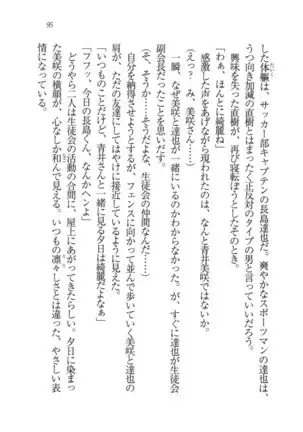 95
した体軀は、サッカー部キャプテンの長島達也だ。爽やかなスポーツマンの達也は、
うつ向き加減の直樹とはまったく正反対のタイプの男と言っていいだろう。
興味を失った直樹が、再び寝転ぼうとしたそのとき。
「わぁ、ほんとに綺麗ね」
感激した声をあげながら現われたのは、なんと青井美咲ではないか。
(えっ？　み、美咲さん……)
一瞬、なぜ美咲と達也が一緒にいるのかわからなかった。が、すぐに達也が生徒会
副会長だったことを思いだす。
(そ、そうか……そうだよな、生徒会の仲間なんか……)
自分を納得させようとするが、フェンスに向かって並んで歩いていく美咲と達也の
肩が、ただの友達にしてはやけに接近しているように見えた。
「いつものことだけど、青井さんと一緒に見る夕日は綺麗だよなぁ」
「フフッ、今日の長島くん、なんかヘンよ」
どうやら二人は生徒会の活動の合間に、屋上にあがってきたらしい。夕日に染まっ
た美咲の横顔が、心なしか和んで見える。いつもの凛々しさとは違った、やさしい表
情になっている。